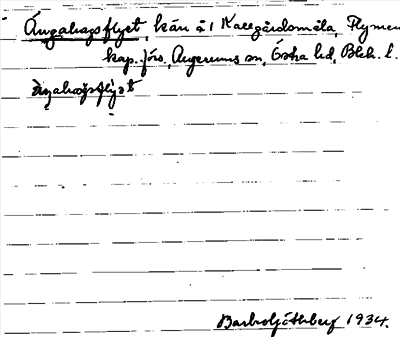 Ängahagsflyet, kärr å 1 Kallgårdsmåla, Flymen
kap.förs, Augerums sn, Östra hd, Blek. l.
Barbro Göthberg 1934.